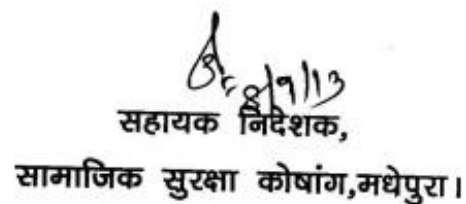 8/9/13
सहायक निदेशक,
सामाजिक सुरक्षा कोषांग,मधेपुरा।